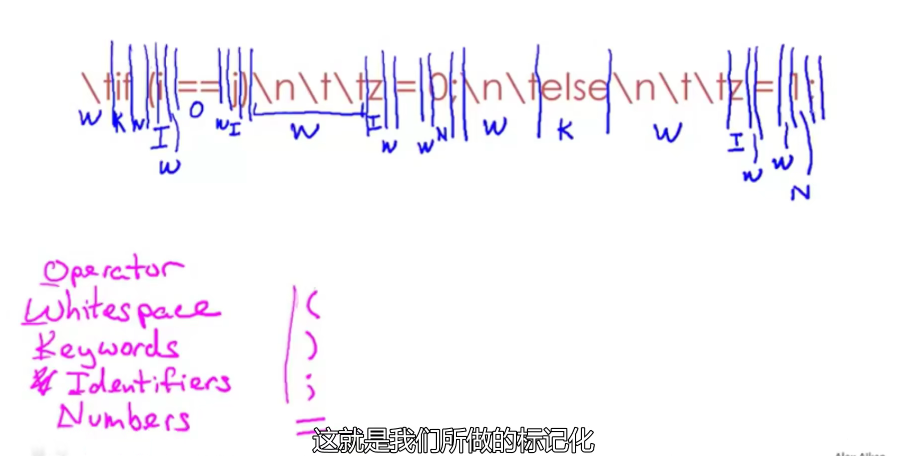 \tif (i == j)\n\t\tz = 0;\n\telse\n\t\tz = 1;
W K W I W O W I W I W W N W K W I W W N
Operator
Whitespace (
Keywords )
Identifiers ;
Numbers =
这就是我们所做的标记化